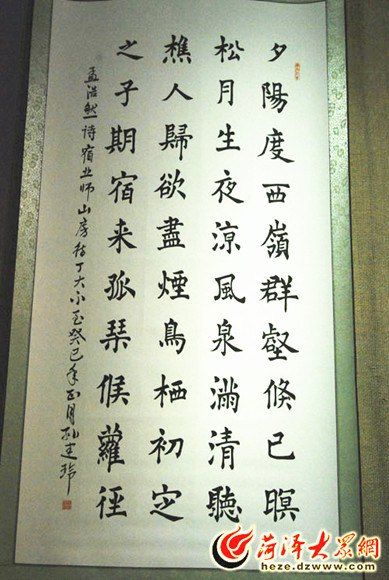 夕陽度西嶺群壑倏已暝
松月生夜涼風泉滿清聽
樵人歸欲盡煙鳥栖初定
之子期宿来孤琹候蘿徑
孟浩然詩宿业师山房待丁大不至癸巳年正月孙建
菏泽大眾網
heze.dzwww.com